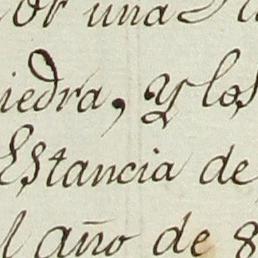 or una
iedra, y los
Estancia de
l año de 8